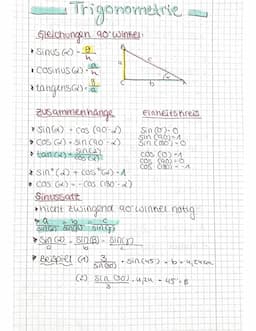 Trigonometrie
Gleichungen 90° winkel
• sinus(α) = g/h
• cosinus(α) = a/h
• tangens(α) = g/a
B
a
c
C
b
A
Zusammenhänge
Einheitskreis
• sin(α) = cos (90-α)
• cos(α) = sin(90-α)
• tan(α) = sin(α)/cos(α)
• sin²(α) + cos²(α) = 1
• cos(α) = -cos(180-α)
sin(0)=0
sin(90)=1
sin(180)=0
cos(0)=1
cos(90)=0
cos(180)=-1
Sinussatz
• nicht zwingend 90° winkel nötig
• a/sin(α) = b/sin(β) = c/sin(γ)
• sin(α)/a = sin(β)/b = sin(γ)/c
• Beispiel (1) 3/sin(30) · sin(45) = b = 4,24cm
(2) sin(30)/3 · 4,24 = 45°